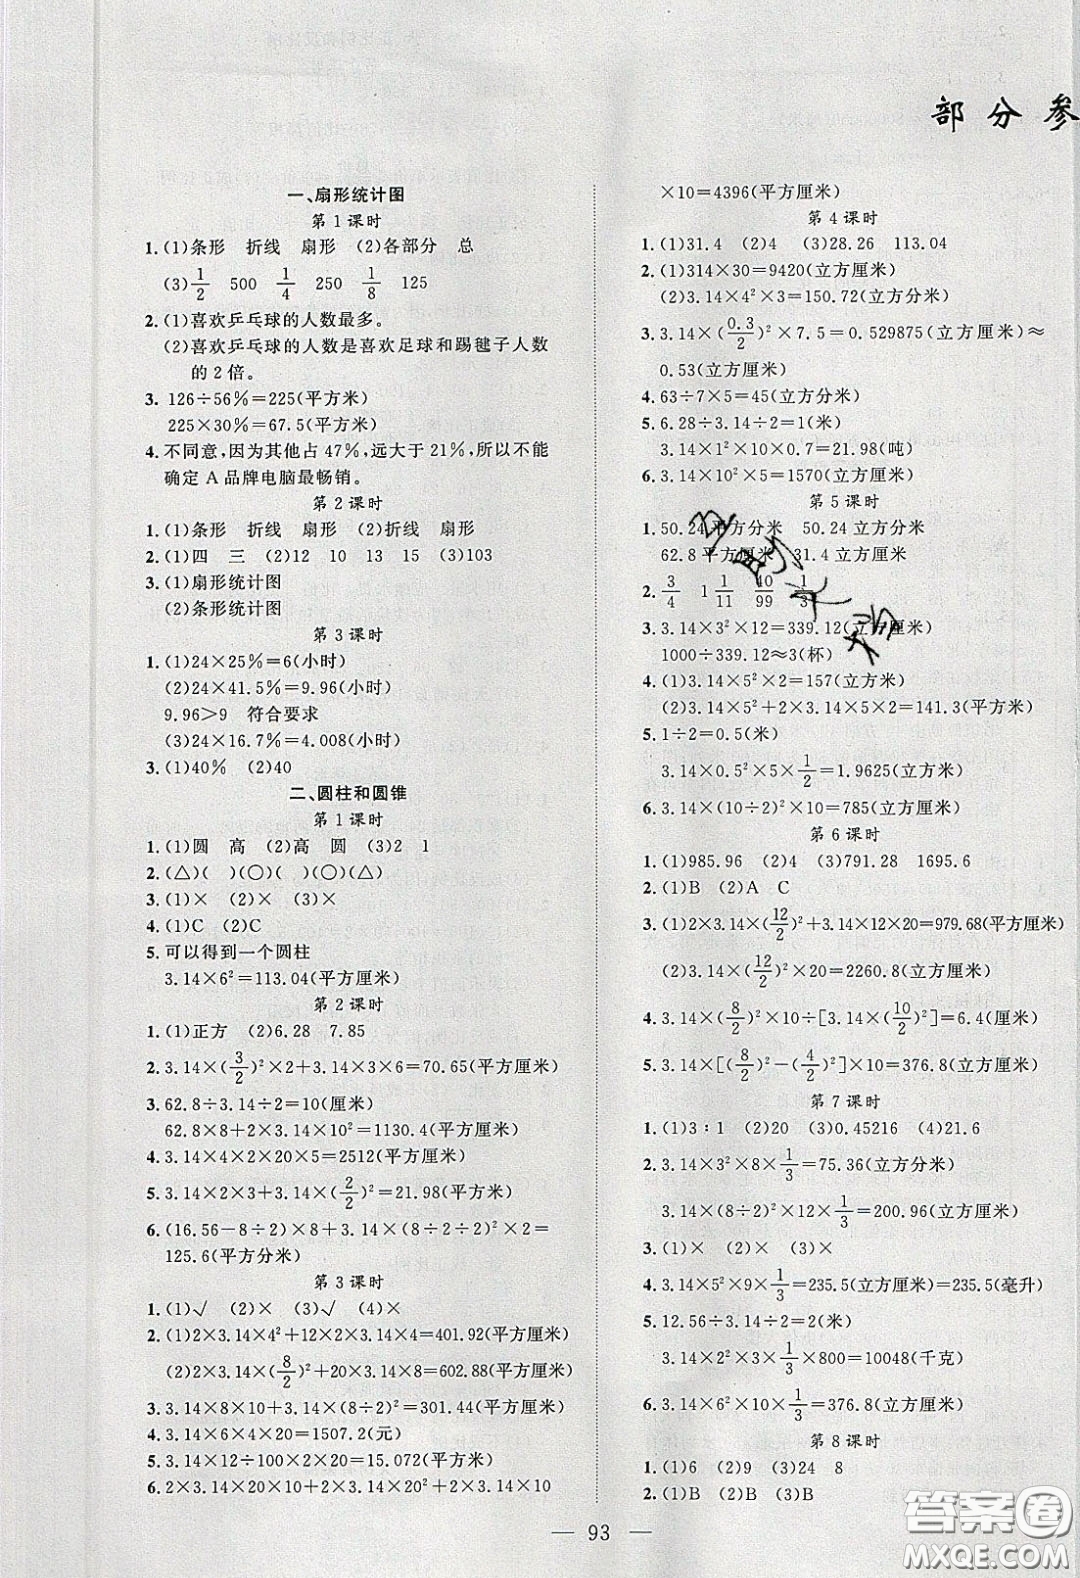 部分参
一、扇形统计图
第1课时
1.(1)条形 折线 扇形 (2)各部分 总
(3)1/2 500 1/4 250 1/8 125
2.(1)喜欢乒乓球的人数最多。
(2)喜欢乒乓球的人数是喜欢足球和踢毽子人数
的2倍。
3. 126÷56%=225(平方米)
225×30%=67.5(平方米)
4. 不同意,因为其他占47%,远大于21%,所以不能
确定A品牌电脑最畅销。
第2课时
1.(1)条形 折线 扇形 (2)折线 扇形
2.(1)四 三 (2)12 10 13 15 (3)103
3.(1)扇形统计图
(2)条形统计图
第3课时
1.(1)24×25%=6(小时)
(2)24×41.5%=9.96(小时)
9.96>9 符合要求
(3)24×16.7%=4.008(小时)
3.(1)40% (2)40
二、圆柱和圆锥
第1课时
1.(1)圆 高 (2)高 圆 (3)2 1
2.(△)( )(○)( )(○)(△)
3.(1)× (2)× (3)×
4.(1)C (2)C
5. 可以得到一个圆柱
3.14×6²=113.04(平方厘米)
第2课时
1.(1)正方 (2)6.28 7.85
2. 3.14×(3/2)²×2+3.14×3×6=70.65(平方厘米)
3. 62.8÷3.14÷2=10(厘米)
62.8×8+2×3.14×10²=1130.4(平方厘米)
4. 3.14×4×2×20×5=2512(平方厘米)
5. 3.14×2×3+3.14×(2/2)²=21.98(平方米)
6.(16.56-8÷2)×8+3.14×(8÷2÷2)²×2=
125.6(平方分米)
第3课时
1.(1)√ (2)× (3)√ (4)×
2.(1)2×3.14×4²+12×2×3.14×4=401.92(平方厘米)
(2)2×3.14×(8/2)²+20×3.14×8=602.88(平方厘米)
3. 3.14×8×10+3.14×(8÷2)²=301.44(平方厘米)
4. 3.14×6×4×20=1507.2(元)
5. 3.14×12÷100×2×20=15.072(平方米)
6. 2×3.14×20×20+2×3.14×20²+2×3.14×10
×10=4396(平方厘米)
第4课时
1.(1)31.4 (2)4 (3)28.26 113.04
2.(1)314×30=9420(立方厘米)
(2)3.14×4²×3=150.72(立方分米)
3. 3.14×(0.3/2)²×7.5=0.529875(立方厘米)≈
0.53(立方厘米)
4. 63÷7×5=45(立方分米)
5. 6.28÷3.14÷2=1(米)
3.14×1²×10×0.7=21.98(吨)
6. 3.14×10²×5=1570(立方厘米)
第5课时
1. 50.24平方分米 50.24立方分米
62.8平方厘米 31.4立方厘米
2. 3/4 1 1/11 40/99 1/3
3. 3.14×3²×12=339.12(立方厘米)
1000÷339.12≈3(杯)
4.(1)3.14×5²×2=157(立方米)
(2)3.14×5²+2×3.14×5×2=141.3(平方米)
5. 1÷2=0.5(米)
3.14×0.5²×5×1/2=1.9625(立方米)
6. 3.14×(10÷2)²×10=785(立方厘米)
第6课时
1.(1)985.96 (2)4 (3)791.28 1695.6
2.(1)B (2)A C
3.(1)2×3.14×(12/2)²+3.14×12×20=979.68(平方厘米)
(2)3.14×(12/2)²×20=2260.8(立方厘米)
4. 3.14×(8/2)²×10÷[3.14×(10/2)²]=6.4(厘米)
5. 3.14×[(8/2)²-(4/2)²]×10=376.8(立方厘米)
第7课时
1.(1)3∶1 (2)20 (3)0.45216 (4)21.6
2. 3.14×3²×8×1/3=75.36(立方分米)
3.14×(8÷2)²×12×1/3=200.96(立方厘米)
3.(1)× (2)× (3)×
4. 3.14×5²×9×1/3=235.5(立方厘米)=235.5(毫升)
5. 12.56÷3.14÷2=2(米)
3.14×2²×3×1/3×800=10048(千克)
6. 3.14×6²×10×1/3=376.8(立方厘米)
第8课时
1.(1)6 (2)9 (3)24 8
2.(1)B (2)B (3)B
— 93 —
答案圈
MXQE.COM